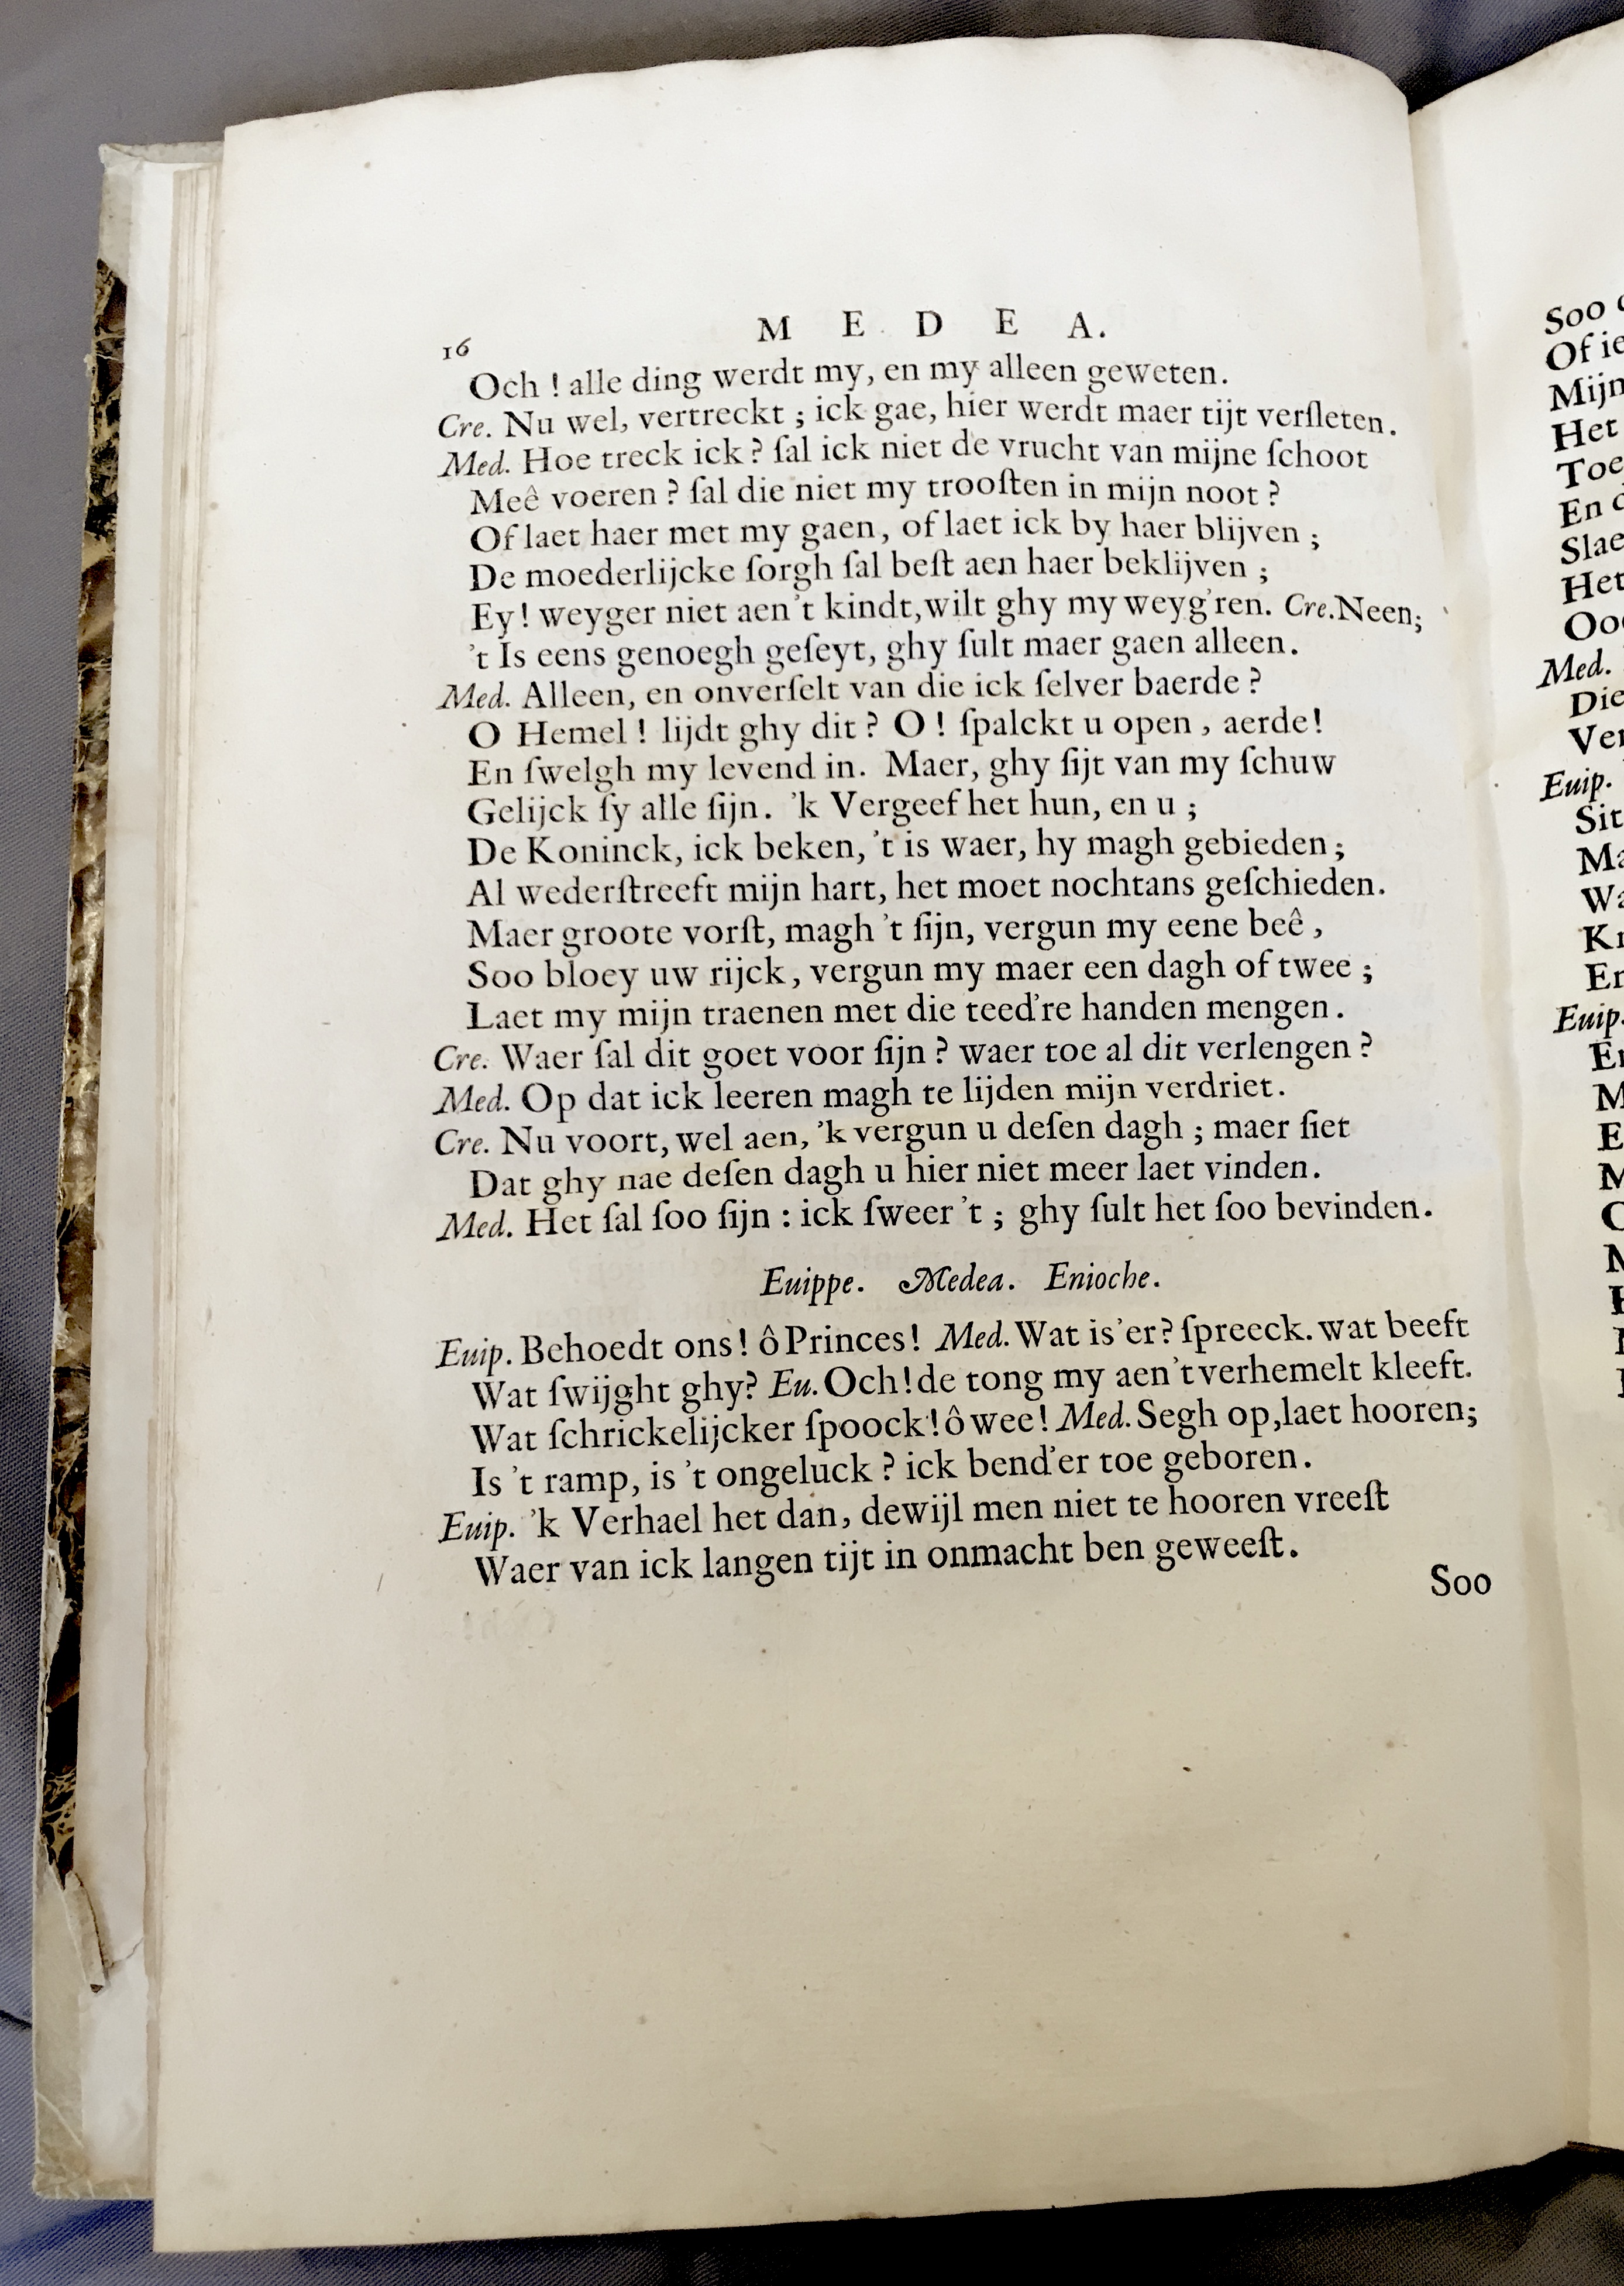 16 MEDEA.
Och ! alle ding werdt my, en my alleen geweten.
Cre. Nu wel, vertreckt ; ick gae, hier werdt maer tijt verſleten.
Med. Hoe treck ick ? ſal ick niet de vrucht van mijne ſchoot
Meê voeren ? ſal die niet my trooſten in mijn noot ?
Of laet haer met my gaen, of laet ick by haer blijven ;
De moederlijcke ſorgh ſal beſt aen haer beklijven ;
Ey! weyger niet aen 't kindt, wilt ghy my weyg'ren. Cre. Neen;
't Is eens genoegh geſeyt, ghy ſult maer gaen alleen.
Med. Alleen, en onverſelt van die ick ſelver baerde ?
O Hemel ! lijdt ghy dit ? O ! ſpalckt u open , aerde!
En ſwelgh my levend in. Maer, ghy ſijt van my ſchuw
Gelijck ſy alle ſijn. 'k Vergeef het hun, en u ;
De Koninck, ick beken, 't is waer, hy magh gebieden ;
Al wederſtreeft mijn hart, het moet nochtans geſchieden.
Maer groote vorſt, magh 't ſijn, vergun my eene beê ,
Soo bloey uw rijck, vergun my maer een dagh of twee ;
Laet my mijn traenen met die teed're handen mengen.
Cre. Waer ſal dit goet voor ſijn ? waer toe al dit verlengen ?
Med. Op dat ick leeren magh te lijden mijn verdriet.
Cre. Nu voort, wel aen, 'k vergun u deſen dagh ; maer ſiet
Dat ghy nae deſen dagh u hier niet meer laet vinden.
Med. Het ſal ſoo ſijn : ick ſweer 't ; ghy ſult het ſoo bevinden.
Euippe. Medea. Enioche.
Euip. Behoedt ons! ô Princes! Med. Wat is'er? ſpreeck. wat beeft
Wat ſwijght ghy? Eu. Och! de tong my aen't verhemelt kleeft.
Wat ſchrickelijcker ſpoock! ô wee! Med. Segh op, laet hooren;
Is 't ramp, is 't ongeluck ? ick bend'er toe geboren.
Euip. 'k Verhael het dan, dewijl men niet te hooren vreeſt
Waer van ick langen tijt in onmacht ben geweeſt.
Soo
Soo
Of
Mijn
Het
En
Het
Med.
Die
Euip.
Sit
Euip.